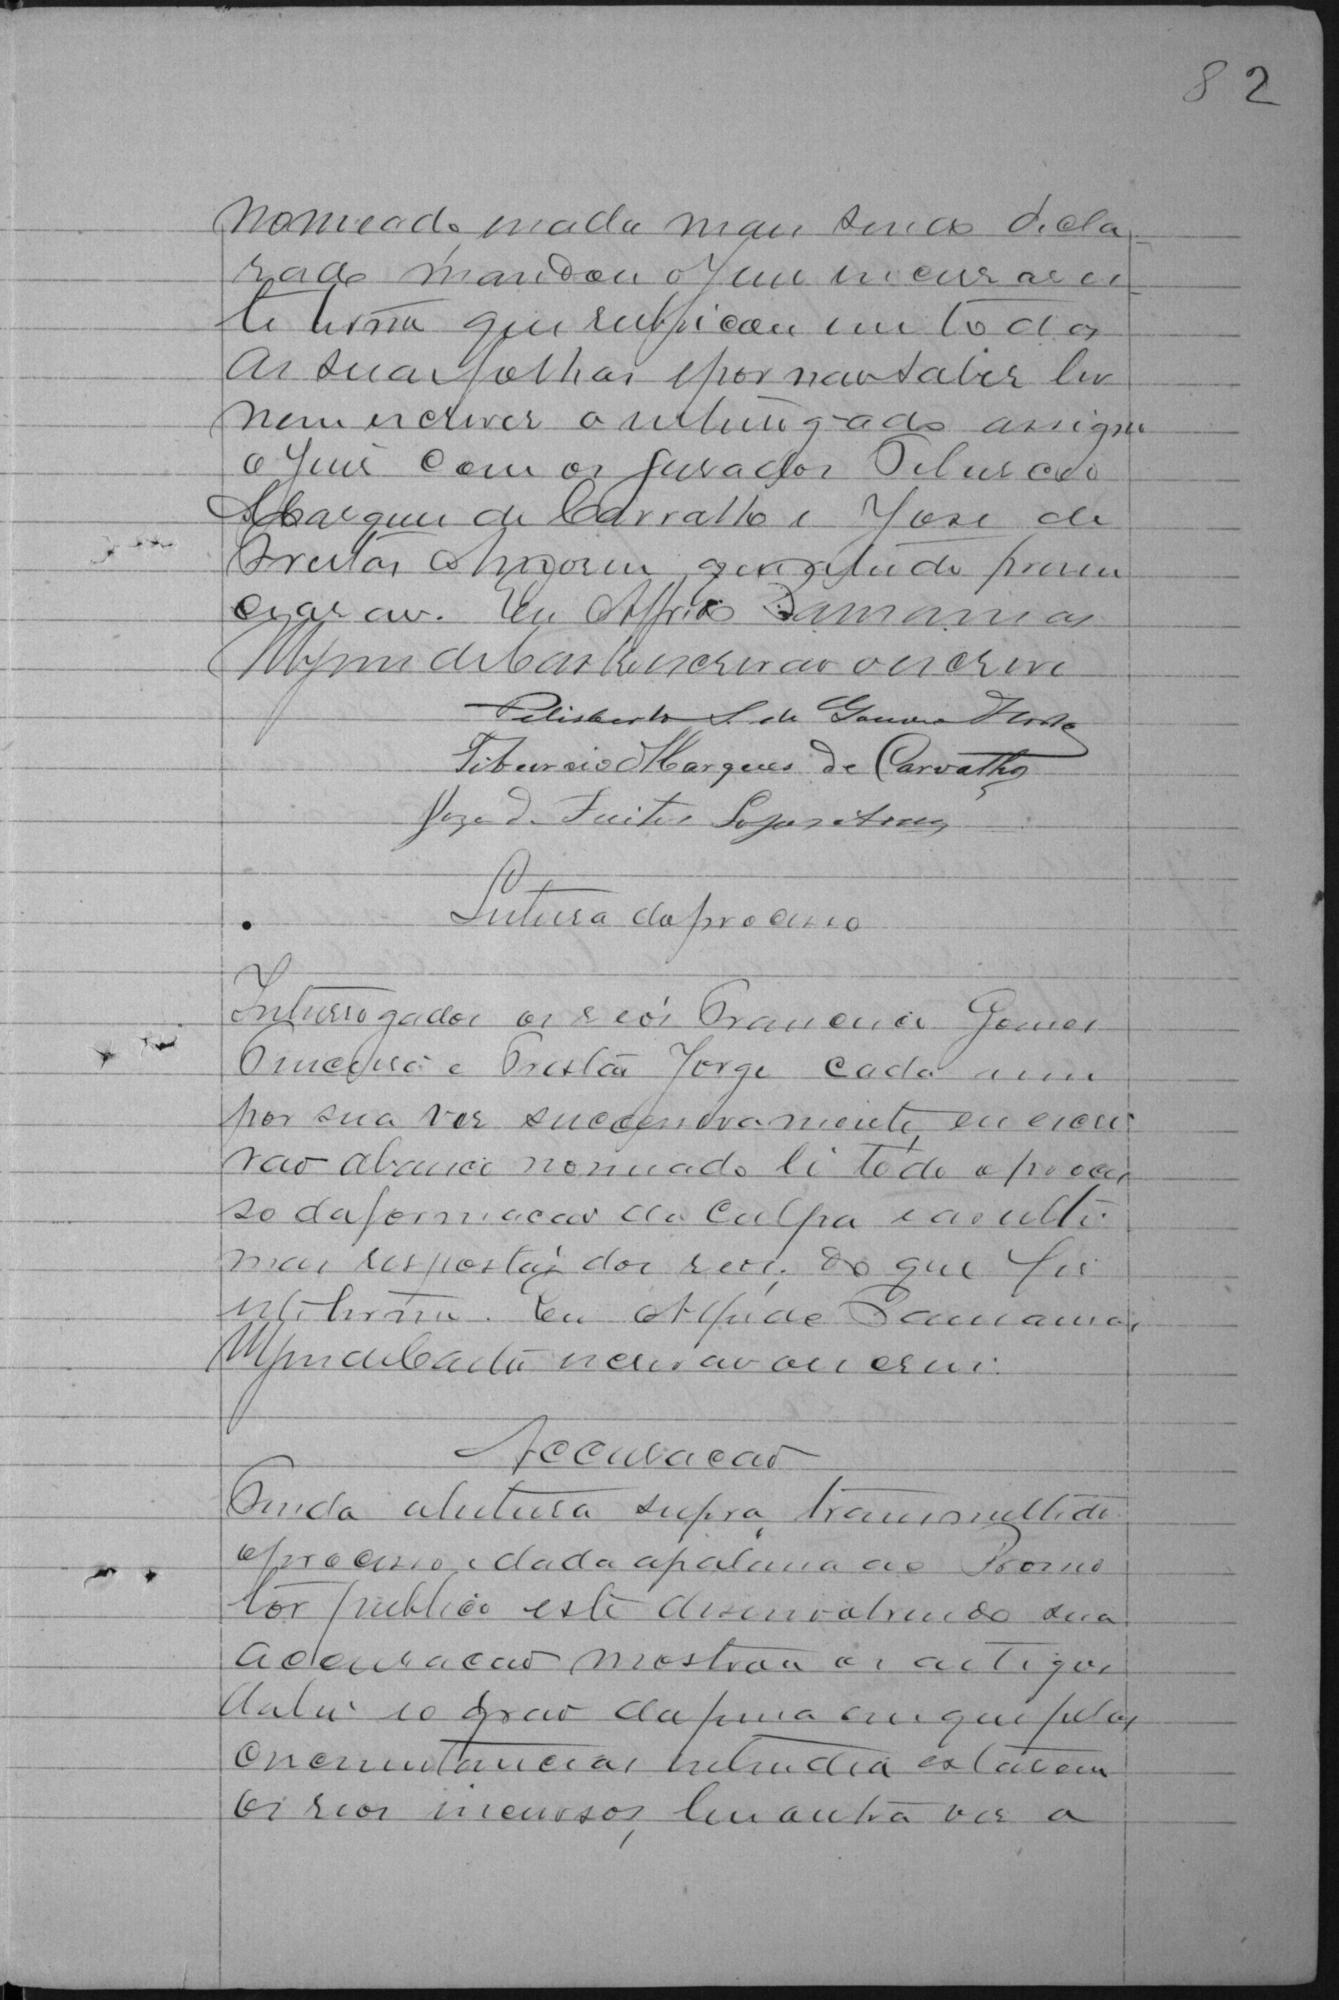 82
nomeado, nada mais sendo decla-
rado mandou o Juiz encerrar es-
te termo que rubricou em todas
as suas folhas e por nao saber ler
nem escrever o interrogado assigna
o Juiz com os jurados Tiburcio
Marques de Carvalho e José de
Freitas que a tudo presen
ciarao. Eu Alfrêdo Damasio
escrivao o escrevi
Felisberto S. de Gouvea Horta
Tiburcio Marques de Carvalho
Joze d. Freitas
Leitura do processo
Interrogados os reós Francisco Gomes
Fonceca e Tristão Jorge cada um
por sua vez successivamente, eu escri
vao abaixo nomeado li todo o proces
so da formacao da culpa e as ulti-
mas respostas dos reós, do que fiz
este termo. Eu
escrivao o escrevi.
Accusacao
Finda a leitura supra, transmettido
o processo, e dada a palavra ao Promo
tor publico este desenvolvendo sua
accusacao mostrou os artigos
da lei e o grao da pena em que pelas
circumstancias entendia estarem
os reos incursos, leu outra vez o